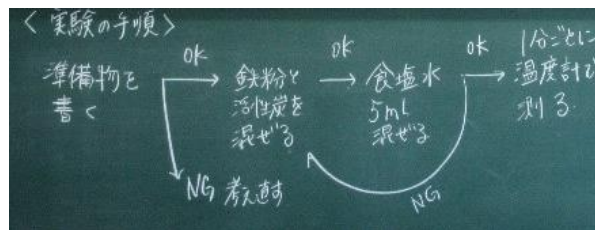 〈実験の手順〉
準備物を
書く
OK
鉄粉と
活性炭を
混ぜる
OK
食塩水
5ml
混ぜる
OK
1分ごとに
温度計で
測る
NG 考え直す
NG